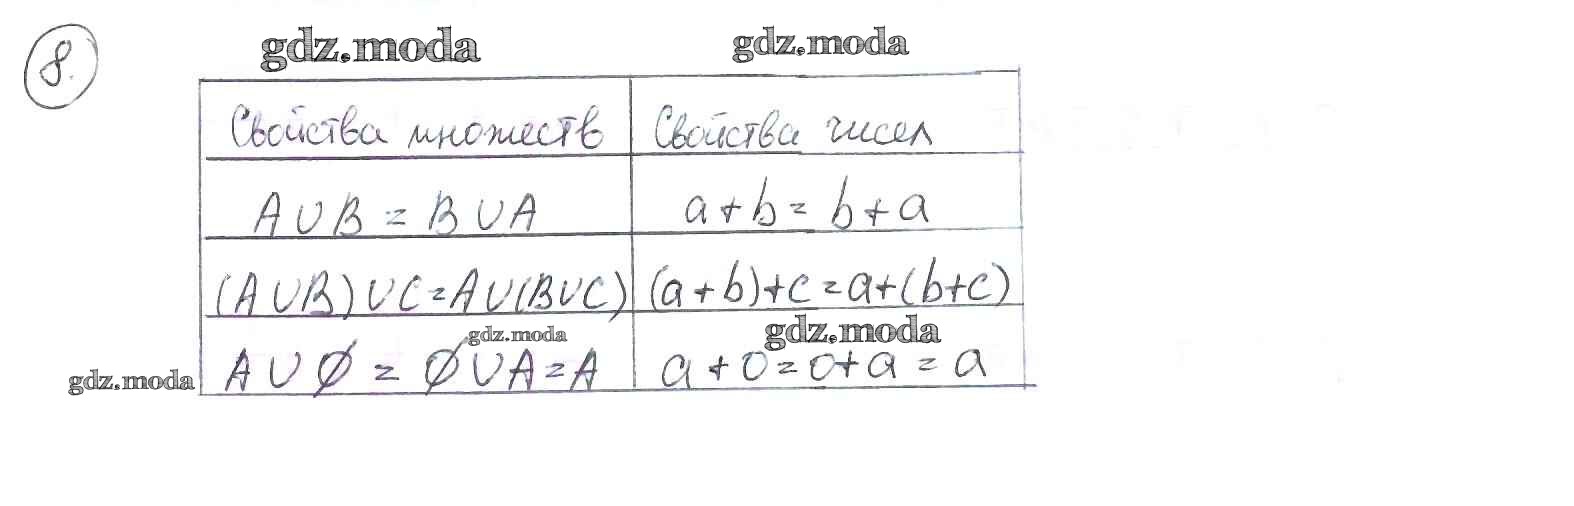 8.
gdz.moda gdz.moda
Свойства множеств Свойства чисел
A∪B = B∪A a+b = b+a
(A∪B)∪C=A∪(B∪C) (a+b)+c=a+(b+c)
gdz.moda gdz.moda
A∪∅ = ∅∪A=A a+0=0+a=a
gdz.moda